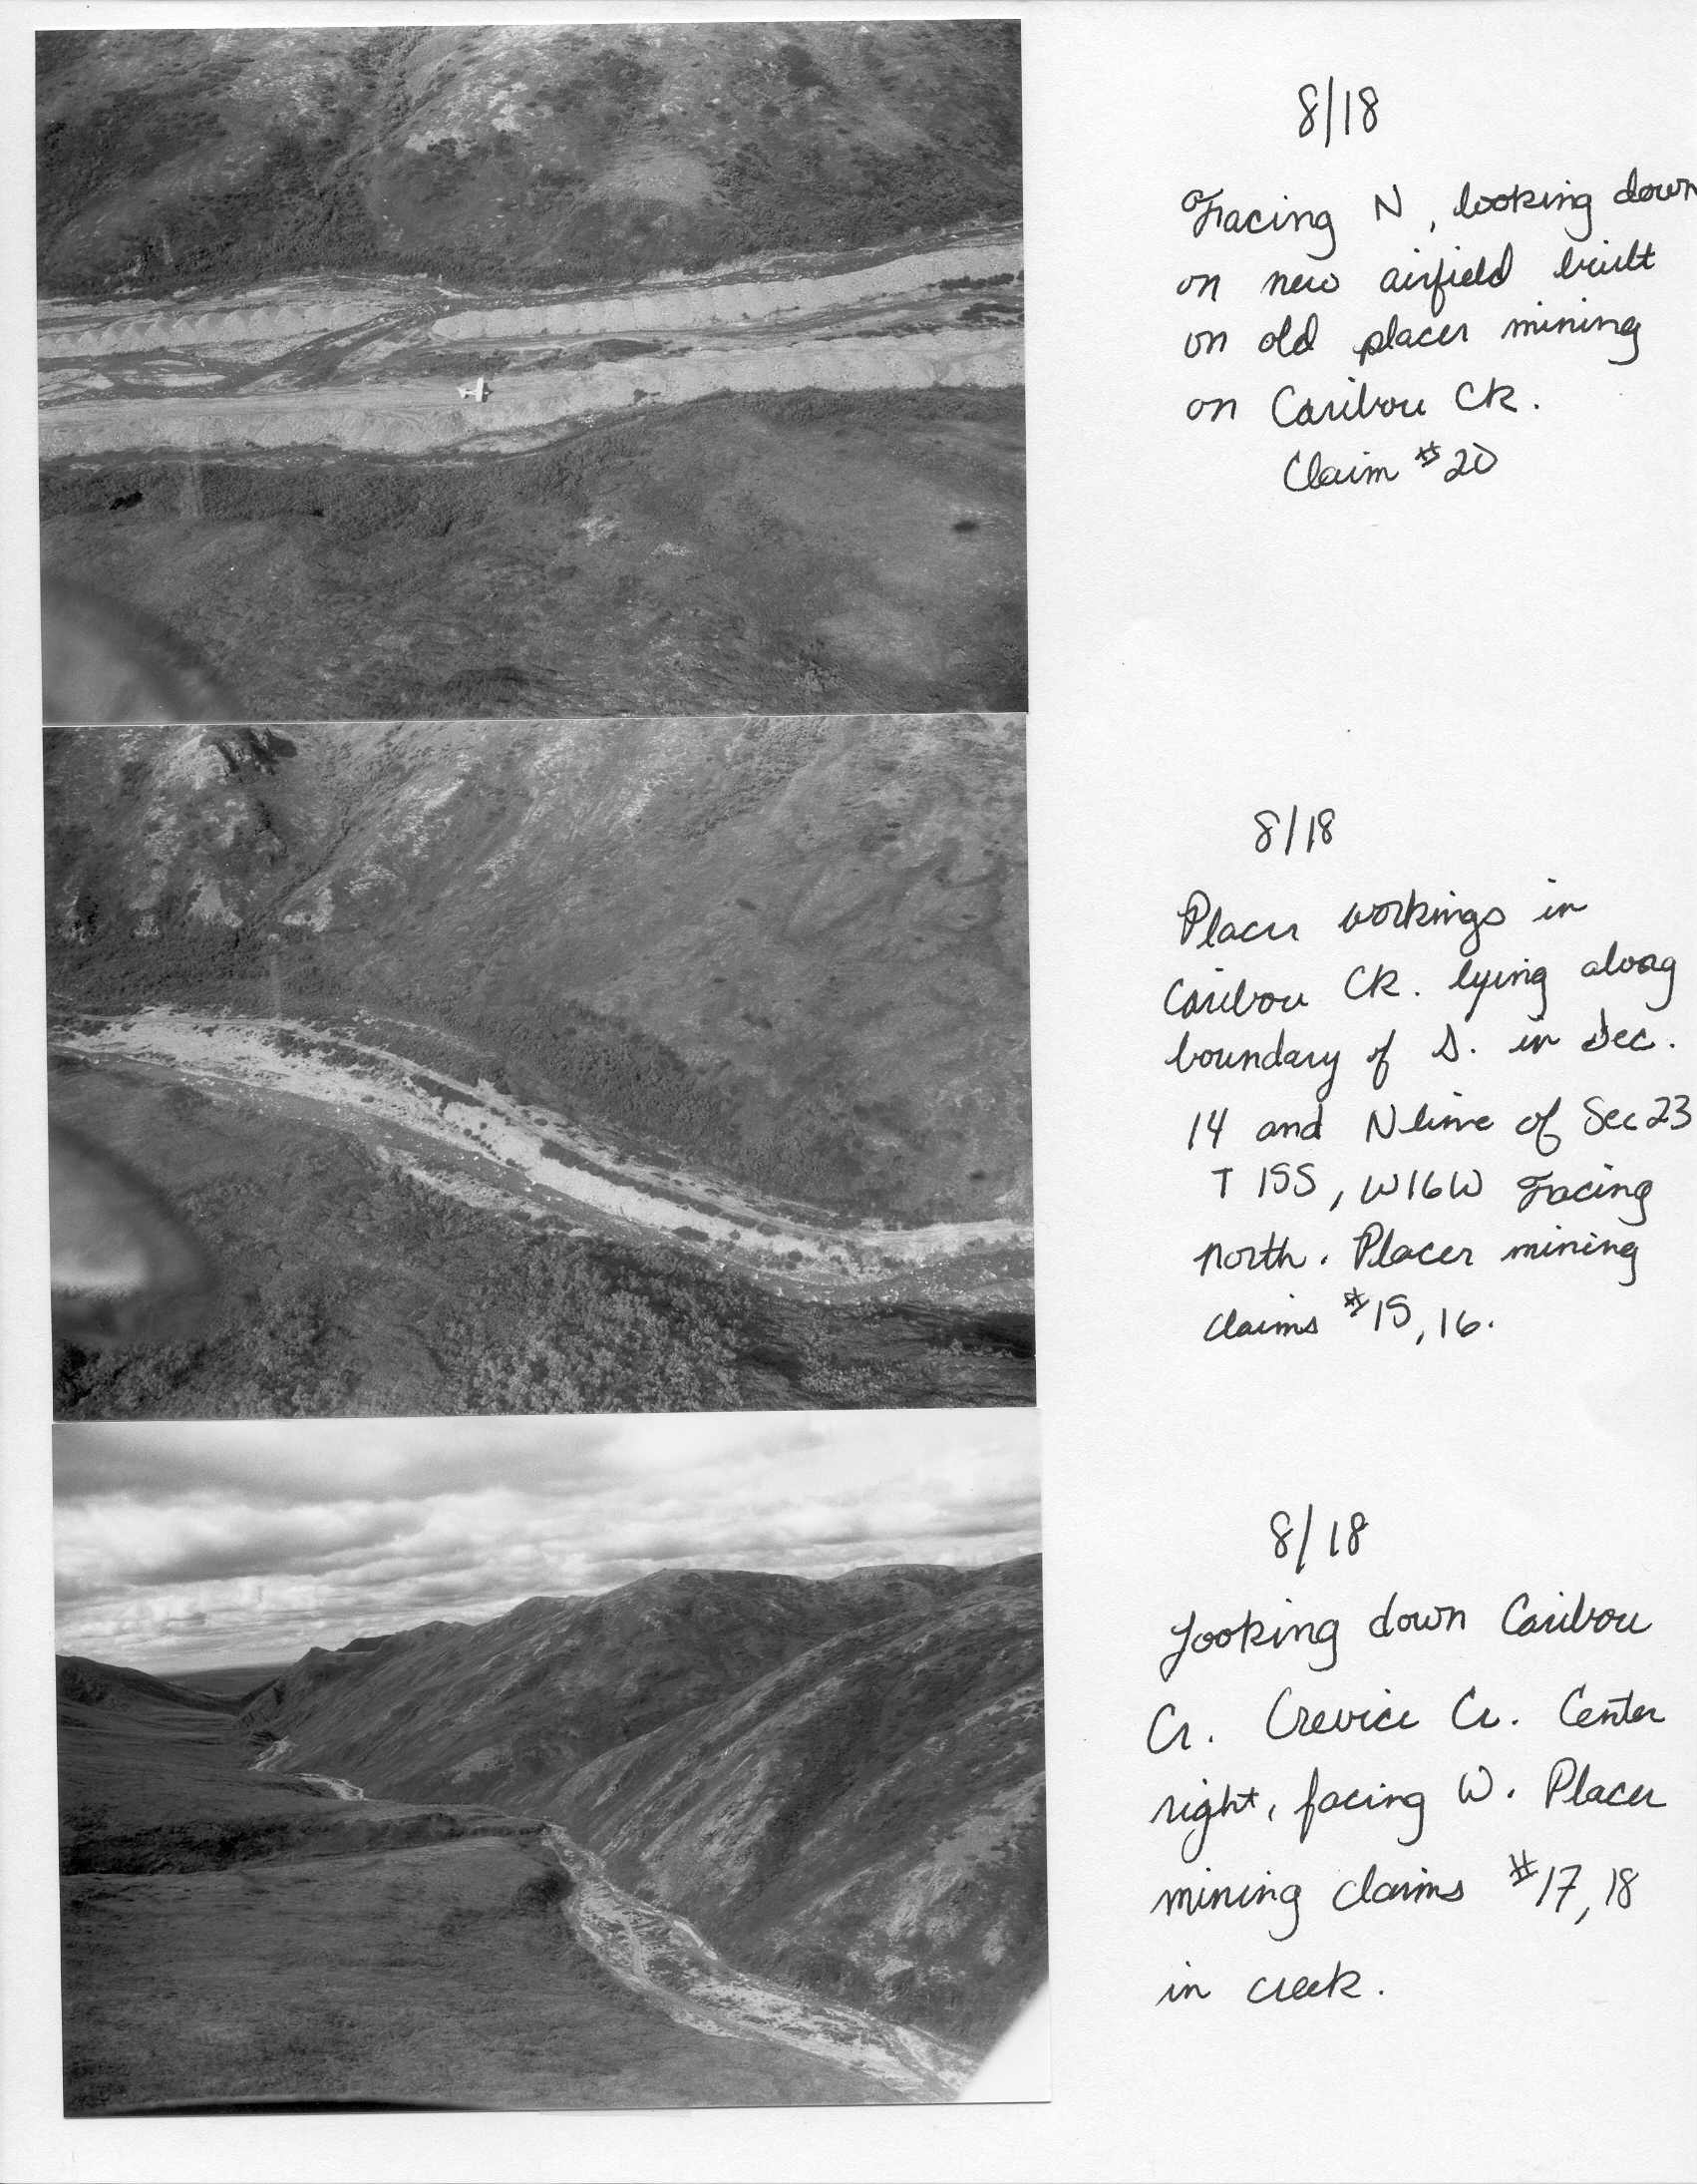 8/18
Facing N, looking down
on new airfield built
on old placer mining
on Caribou Ck.
Claim #20
8/18
Placer workings in
Caribou Ck. lying along
boundary of S. in Sec.
14 and N line of Sec 23
T 15S, W16W Facing
north. Placer mining
claims #15, 16.
8/18
Looking down Caribou
Cr. Crevice Cr. Center
right, facing W. Placer
mining claims #17, 18
in creek.